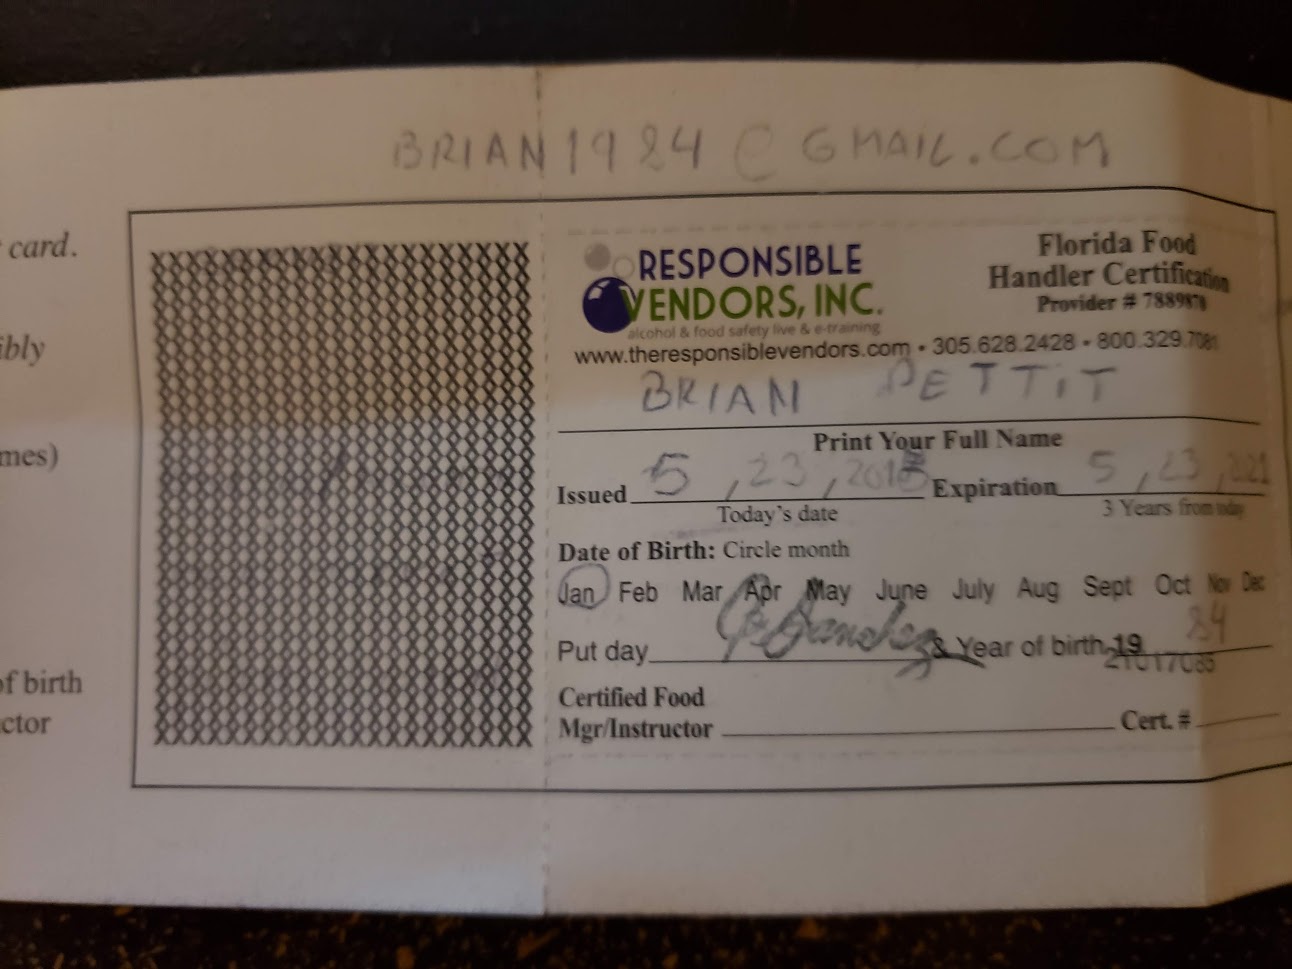 BRIAN1984@GMAIL.COM
card.
ibly
mes)
of birth
ctor
RESPONSIBLE
VENDORS, INC.
alcohol & food safety live & e-training
Florida Food
Handler Certification
Provider # 7889878
www.theresponsiblevendors.com • 305.628.2428 • 800.329.7081
BRIAN PETTIT
Print Your Full Name
Issued 5, 23, 2018 Expiration 5, 23, 2021
Today's date 3 Years from today
Date of Birth: Circle month
Jan Feb Mar Apr May June July Aug Sept Oct Nov Dec
Put day & Year of birth 19 84
21017085
Certified Food
Mgr/Instructor Cert. #